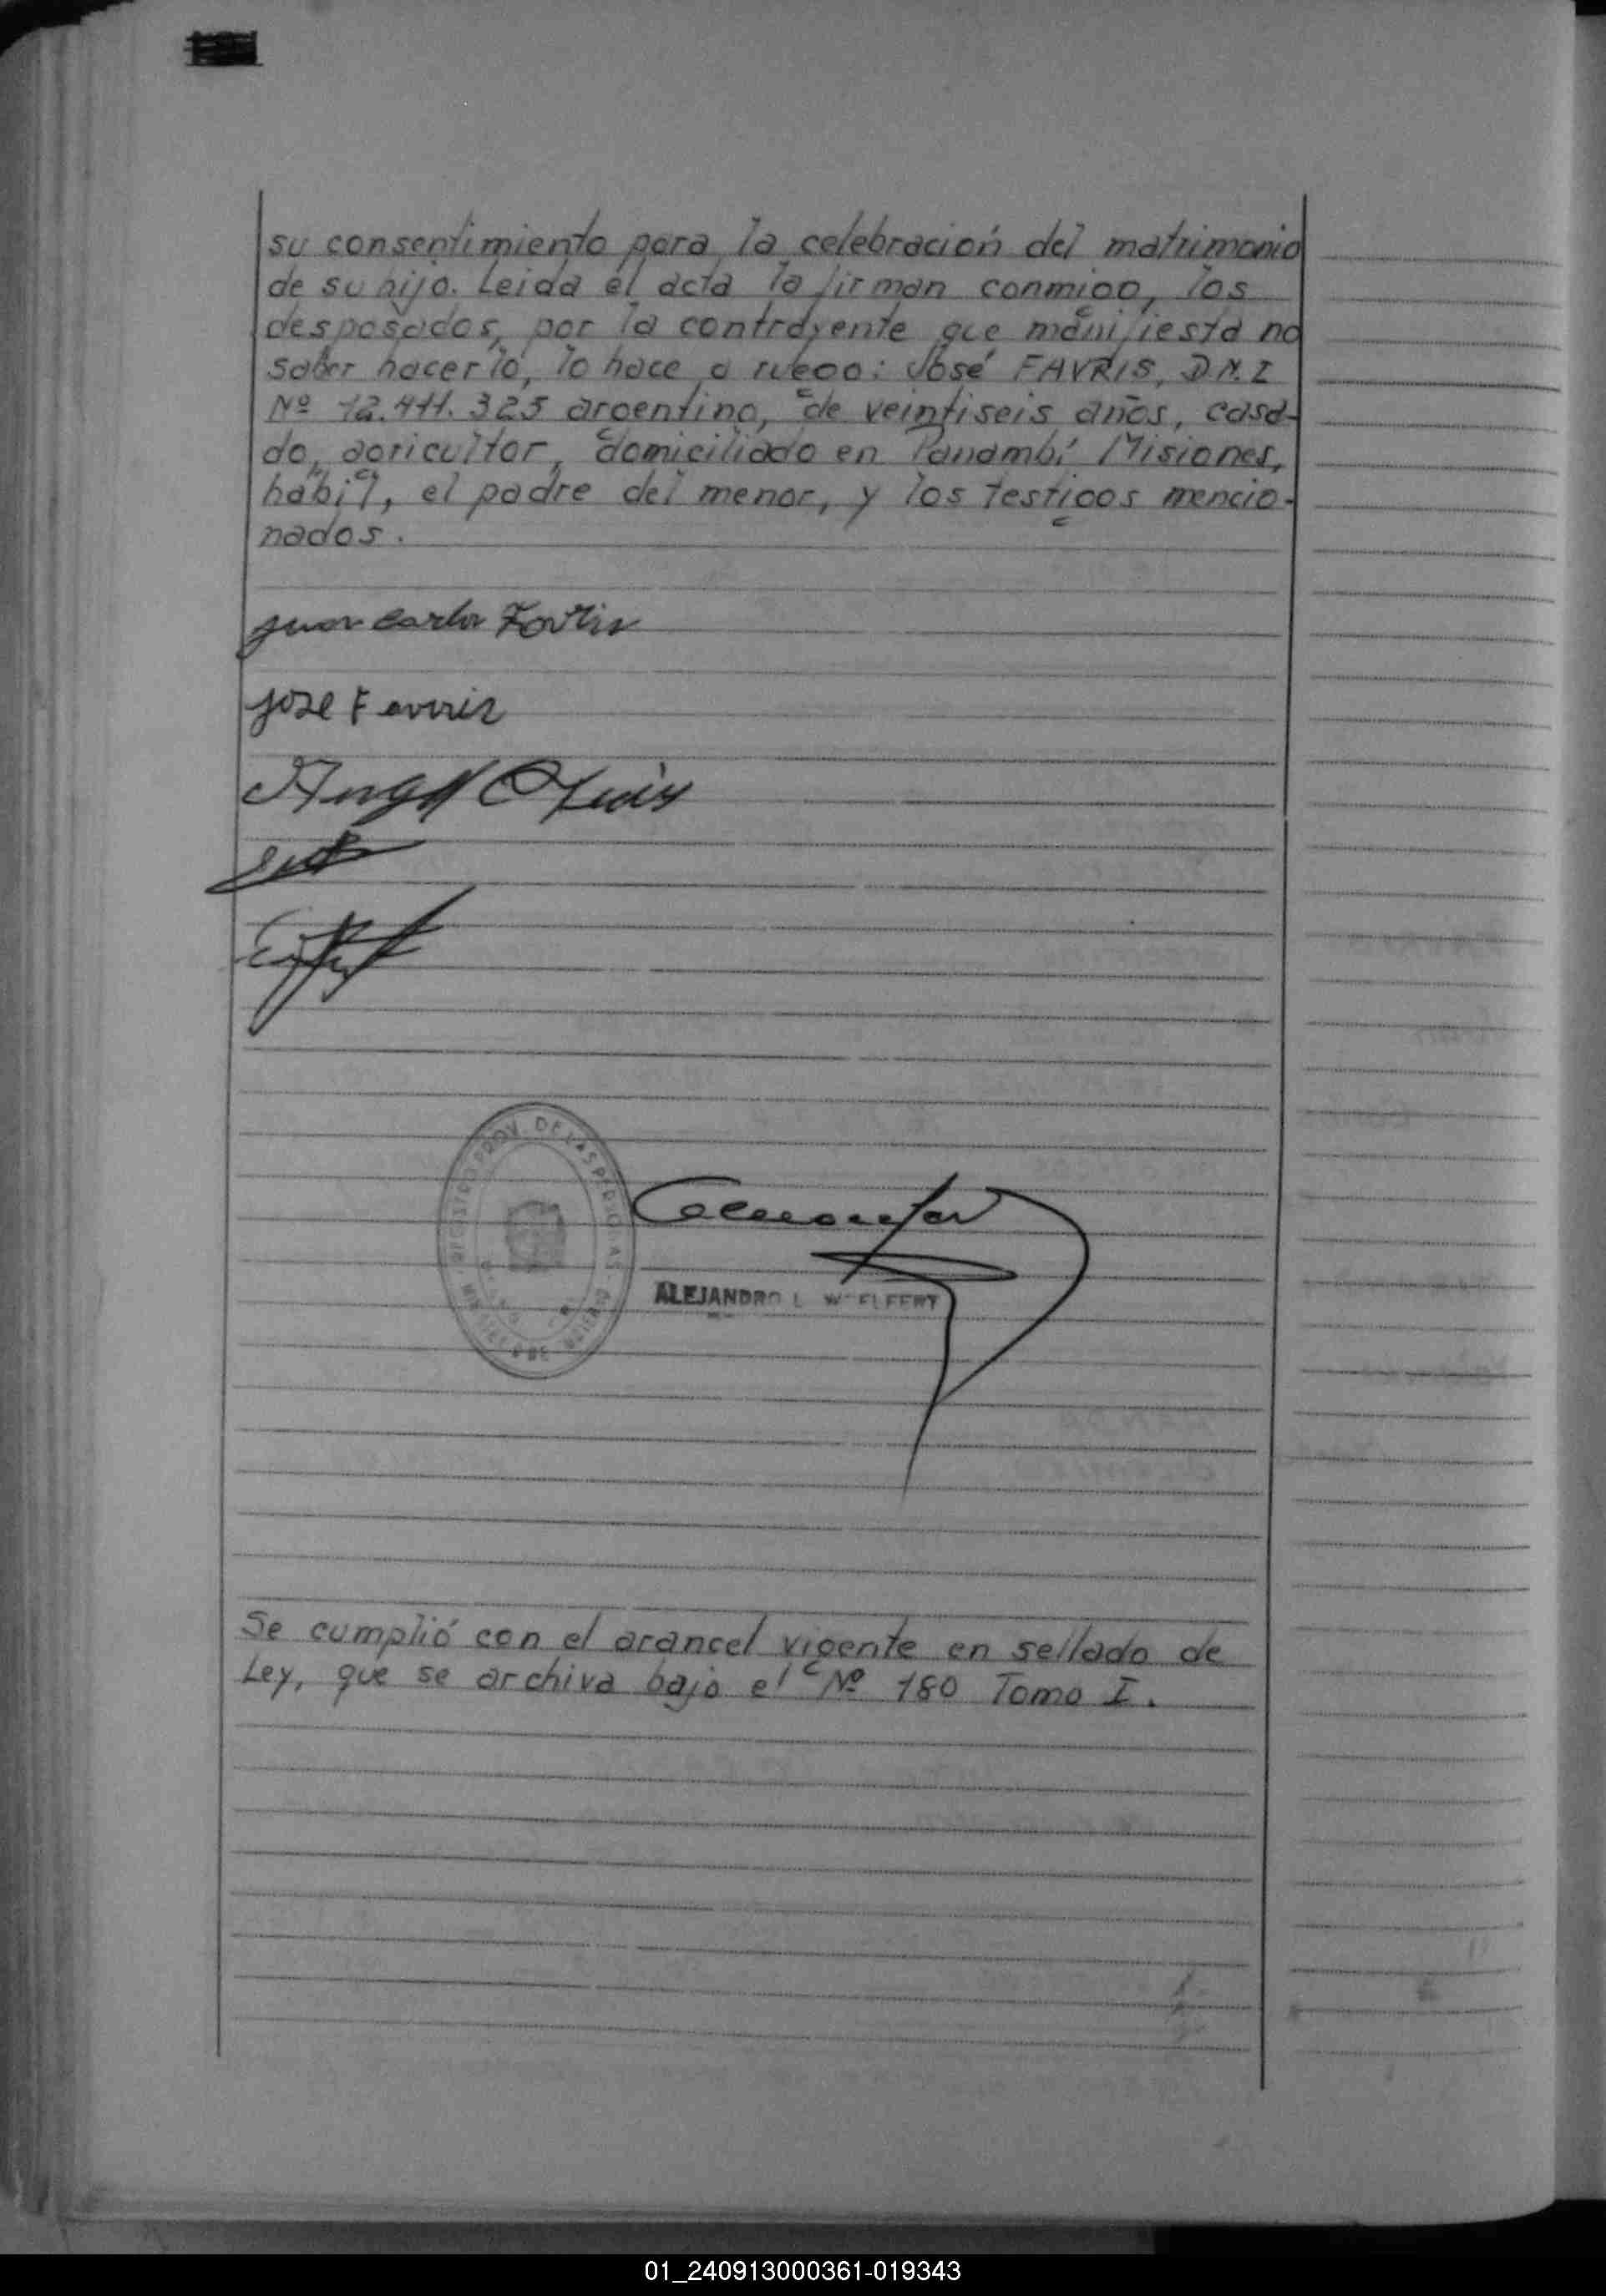 su consentimiento para la celebración del matrimonio
de su hijo. Leida el acta la firman conmigo, los
desposados, por la contrayente que manifiesta no
saber hacerlo, lo hace a ruego: José FAVRIS, D.N.I
Nº 12.411.325 argentino, de veintiseis años, casa-
do, agricultor, domiciliado en Panambí Misiones,
hábil, el padre del menor, y los testigos mencio-
nados.
Juan Carlos
José Favris
REGISTRO PROV. DE LAS PERSONAS
ALEJANDRO L. WELFERT
Se cumplió con el arancel vigente en sellado de
Ley, que se archiva bajo el Nº 180 Tomo I.
01_240913000361-019343